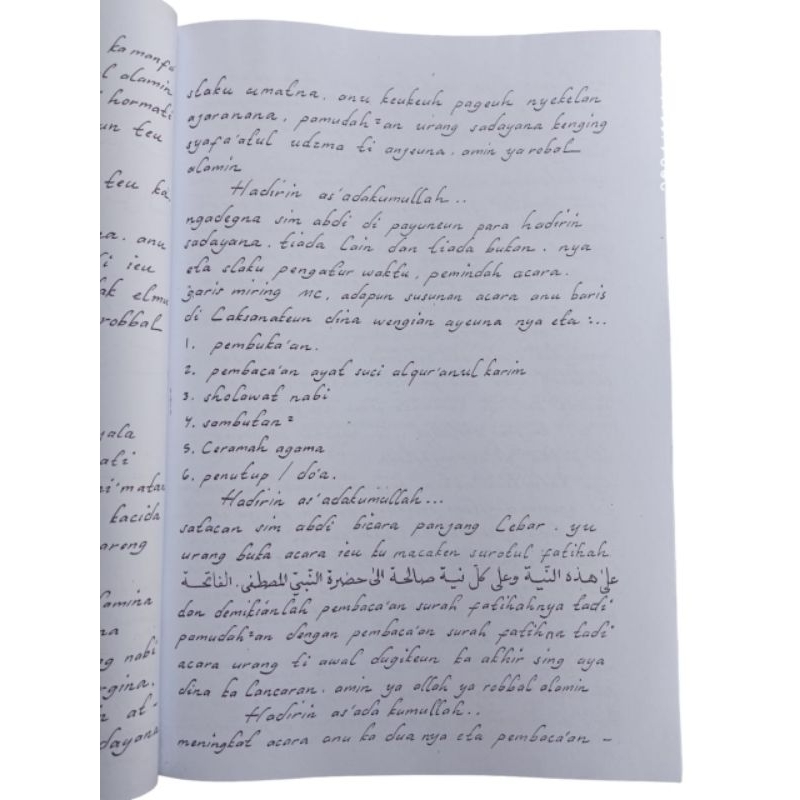 ka manfa
l alamin
hormati
un teu
teu ka
na. anu
di ieu
ak elmu
robbal
gala
ati
ni'matan
kacida
areng
lamina
na
ng nabi
rgina.
n at-
dayana
slaku umatna. anu keukeuh pageuh nyekelan
ajaranana, pamudah²an urang sadayana kenging
syafa'atul udzma ti anjeuna. amin ya robal
alamin
Hadirin as'adakumullah..
ngadegna sim abdi di payuneun para hadirin
sadayana. tiada lain dan tiada bukan. nya
eta slaku pengatur waktu, pemindah acara.
garis miring MC, adapun susunan acara anu baris
di Laksanakeun dina wengian ayeuna nya eta :...
1. pembuka'an.
2. pembaca'an ayat suci alqur'anul karim
3. sholawat nabi
4. sambutan²
5. Ceramah agama
6. penutup / do'a.
Hadirin as'adakumullah...
satacan sim abdi bicara panjang Lebar. yu
urang buka acara ieu ku macaken surotul fatihah
على هذه النّية وعلى كلّ نية صالحة الى حضرة النّبيّ المصطفى. الفاتحة
dan demikianlah pembaca'an surah fatihahnya tadi
pamudah²an dengan pembaca'an surah fatihna tadi
acara urang ti awal dugikeun ka akhir sing aya
dina ka Lancaran. amin ya allah ya robbal alamin
Hadirin as'ada kumullah..
meningkat acara anu ka dua nya eta pembaca'an -